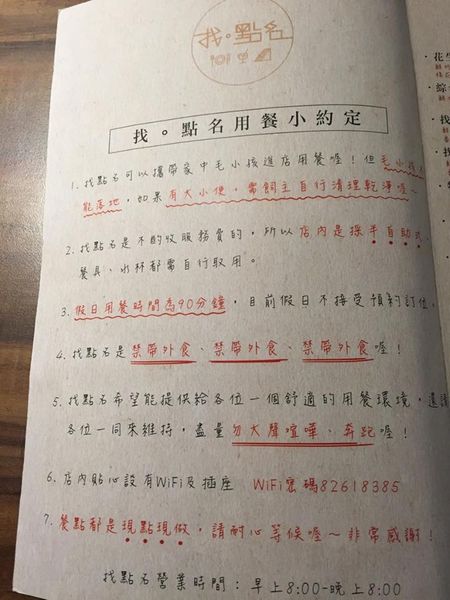 找。點名
找。點名用餐小約定
1. 找點名可以攜帶家中毛小孩進店用餐喔！但毛小孩
能落地，如果有大小便，需飼主自行清理乾淨喔～
2. 找點名是不酌收服務費的，所以店內是採半自助式
餐具、水杯都需自行取用。
3. 假日用餐時間為90分鐘，目前假日不接受預約訂位。
4. 找點名是禁帶外食、禁帶外食、禁帶外食喔！
5. 找點名希望能提供給各位一個舒適的用餐環境，還請
各位一同來維持，盡量勿大聲喧嘩、奔跑喔！
6. 店內貼心設有WiFi及插座 WiFi密碼82618385
7. 餐點都是現點現做，請耐心等候喔～非常感謝！
找點名營業時間：早上8:00-晚上8:00
花生
綜
找